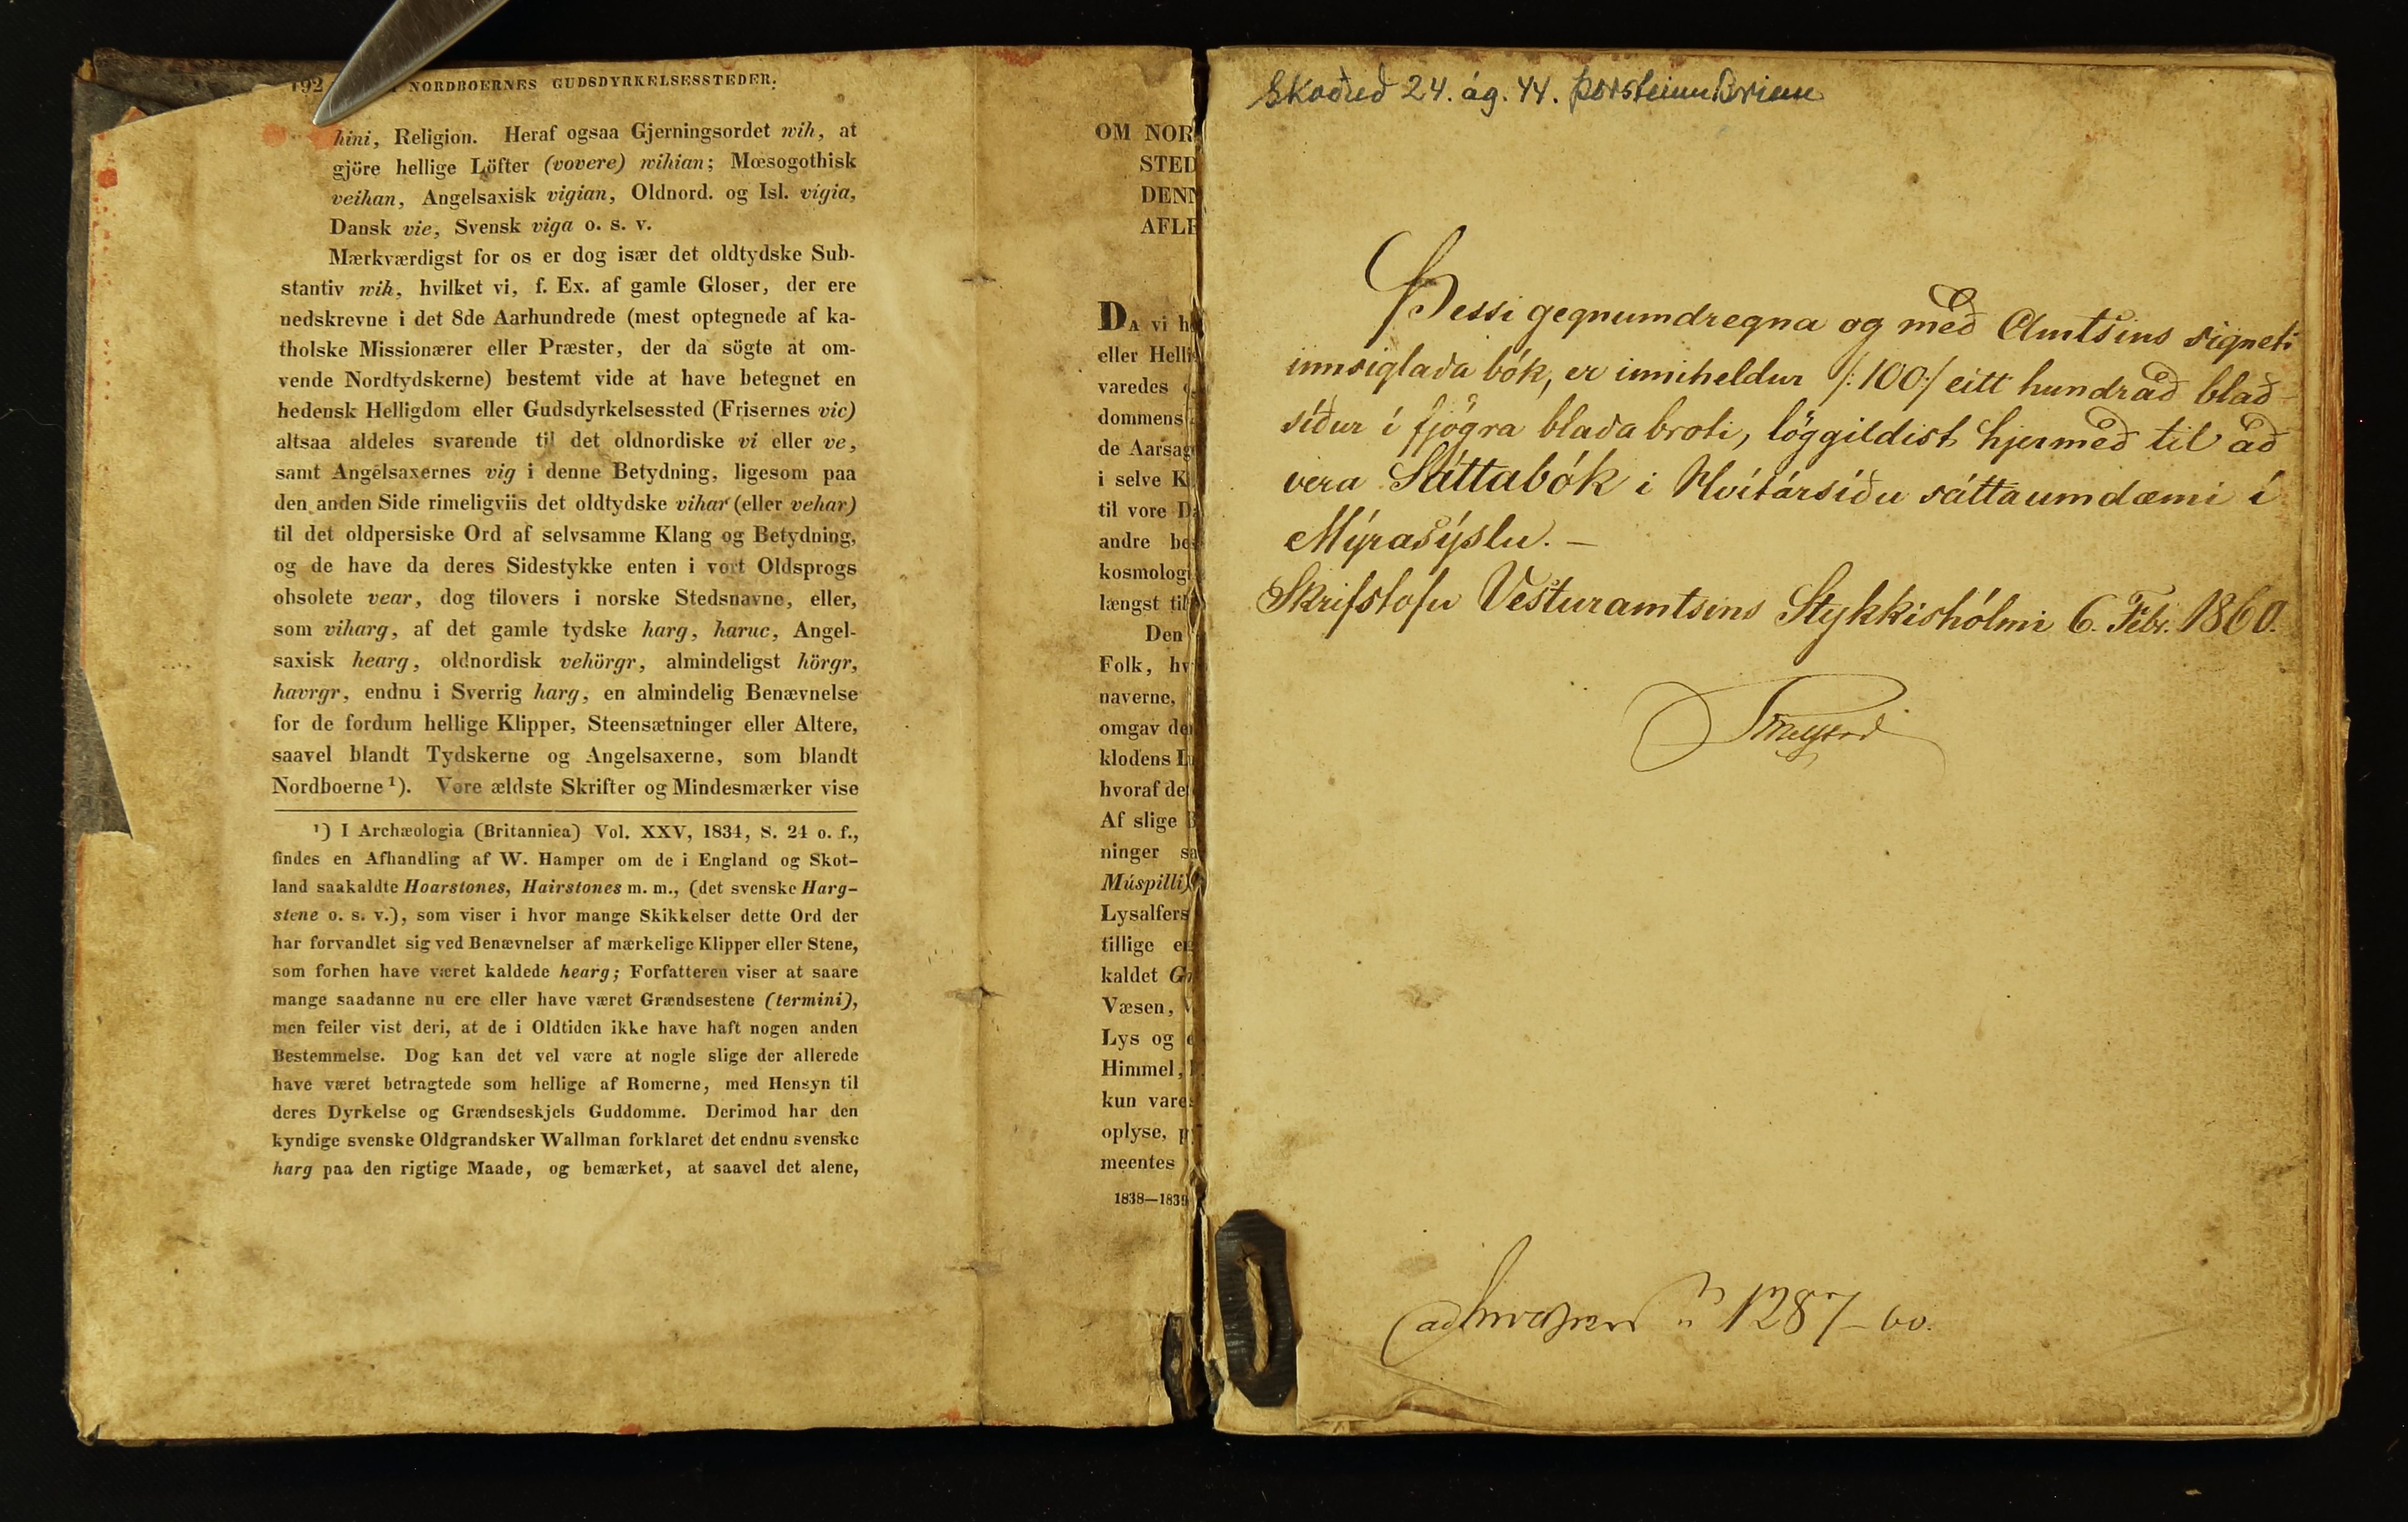 192 NORDBOERNES GUDSDYRKELSESSTEDER.
hini, Religion. Heraf ogsaa Gjerningsordet wih, at
gjöre hellige Löfter (vovere) wihian; Mœsogothisk
veihan, Angelsaxisk vigian, Oldnord. og Isl. vígia,
Dansk vie, Svensk viga o. s. v.
Mærkværdigst for os er dog især det oldtydske Sub-
stantiv wih, hvilket vi, f. Ex. af gamle Gloser, der ere
nedskrevne i det 8de Aarhundrede (mest optegnede af ka-
tholske Missionærer eller Præster, der da sögte at om-
vende Nordtydskerne) bestemt vide at have betegnet en
hedensk Helligdom eller Gudsdyrkelsessted (Frisernes vic)
altsaa aldeles svarende til det oldnordiske vi eller ve,
samt Angelsaxernes vig i denne Betydning, ligesom paa
den anden Side rimeligviis det oldtydske vihar (eller vehar)
til det oldpersiske Ord af selvsamme Klang og Betydning,
og de have da deres Sidestykke enten i vort Oldsprogs
obsolete vear, dog tilovers i norske Stedsnavne, eller,
som viharg, af det gamle tydske harg, haruc, Angel-
saxisk hearg, oldnordisk vehörgr, almindeligst hörgr,
havrgr, endnu i Sverrig harg, en almindelig Benævnelse
for de fordum hellige Klipper, Steensætninger eller Altere,
saavel blandt Tydskerne og Angelsaxerne, som blandt
Nordboerne ¹). Vore ældste Skrifter og Mindesmærker vise
¹) I Archæologia (Britannica) Vol. XXV, 1834, S. 24 o. f.,
findes en Afhandling af W. Hamper om de i England og Skot-
land saakaldte Hoarstones, Hairstones m. m., (det svenske Harg-
stene o. s. v.), som viser i hvor mange Skikkelser dette Ord der
har forvandlet sig ved Benævnelser af mærkelige Klipper eller Stene,
som forhen have været kaldede hearg; Forfatteren viser at saare
mange saadanne nu ere eller have været Grændsestene (termini),
men feiler vist deri, at de i Oldtiden ikke have haft nogen anden
Bestemmelse. Dog kan det vel være at nogle slige der allerede
have været betragtede som hellige af Romerne, med Hensyn til
deres Dyrkelse og Grændseskjels Guddomme. Derimod har den
kyndige svenske Oldgrandsker Wallman forklaret det endnu svenske
harg paa den rigtige Maade, og bemærket, at saavel det alene,
OM NOR
STED
DENN
AFLE
DA vi h
eller Helli
varedes
dommens
de Aarsag
i selve K
til vore D
andre be
kosmologi
længst til
Den
Folk, hv
naverne,
omgav de
klodens L
hvoraf de
Af slige
ninger sa
Múspilli)
Lysalfers
tillige e
kaldet G
Væsen,
Lys og
Himmel,
kun vare
oplyse, p
meentes
1838—1839
Skoðuð 24. ág. 44. Þorsteinn Briem
Þessi gegnumdregna og með Amtsins signeti
innsiglaða bók, er inniheldur /:100:/ eitt hundrað blað-
síður í fjögra blaða broti, löggildist hjermeð til að
vera Sáttabók i Hvítársíðu sáttaumdæmi í
Mýrasýslu. —
Skrifstofu Vesturamtsins Stykkishólmi 6. Febr. 1860.